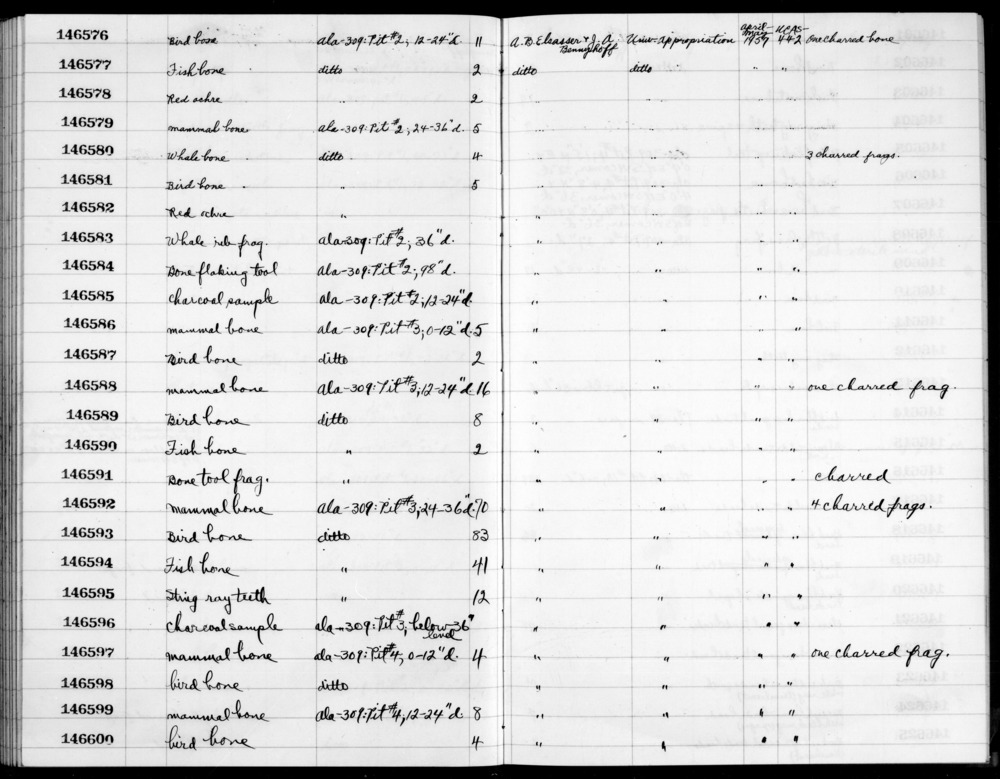 146576 Bird bone ala-309: Pit #2, 12-24"d. 11 A. B. Elsasser & J. A. Bennyhoff Univ. appropriation april-may 1959 UCAS-442 One charred bone
146577 Fish bone ditto 2 ditto ditto " "
146578 Red ochre " 2 " " " "
146579 mammal bone ala-309: Pit #2, 24-36"d. 5 " " " "
146580 Whale bone ditto 4 " " " " 3 charred frags.
146581 Bird bone " 5 " " " "
146582 Red ochre " " " " "
146583 Whale rib frag. ala-309: Pit #2, 36"d. " " " "
146584 Bone flaking tool ala-309: Pit #2, 98"d. " " " "
146585 charcoal sample ala-309: Pit #2, 12-24"d. " " " "
146586 mammal bone ala-309: Pit #3; 0-12"d. 5 " " " "
146587 Bird bone ditto 2 " " " "
146588 mammal bone ala-309: Pit #3, 12-24"d 16 " " " " one charred frag.
146589 Bird bone ditto 8 " " " "
146590 Fish bone " 2 " " " "
146591 Bone tool frag. " " " " " charred
146592 mammal bone ala-309: Pit #3, 24-36"d. 70 " " " " 4 charred frags.
146593 Bird bone ditto 83 " " " "
146594 Fish bone " 41 " " " "
146595 Sting ray teeth " 12 " " " "
146596 charcoal sample ala-309: Pit #3, below 36" level " " " "
146597 mammal bone ala-309: Pit #4, 0-12"d. 4 " " " " one charred frag.
146598 bird bone ditto " " " "
146599 mammal bone ala-309: Pit #4, 12-24"d. 8 " " " "
146600 bird bone 4 " " " "